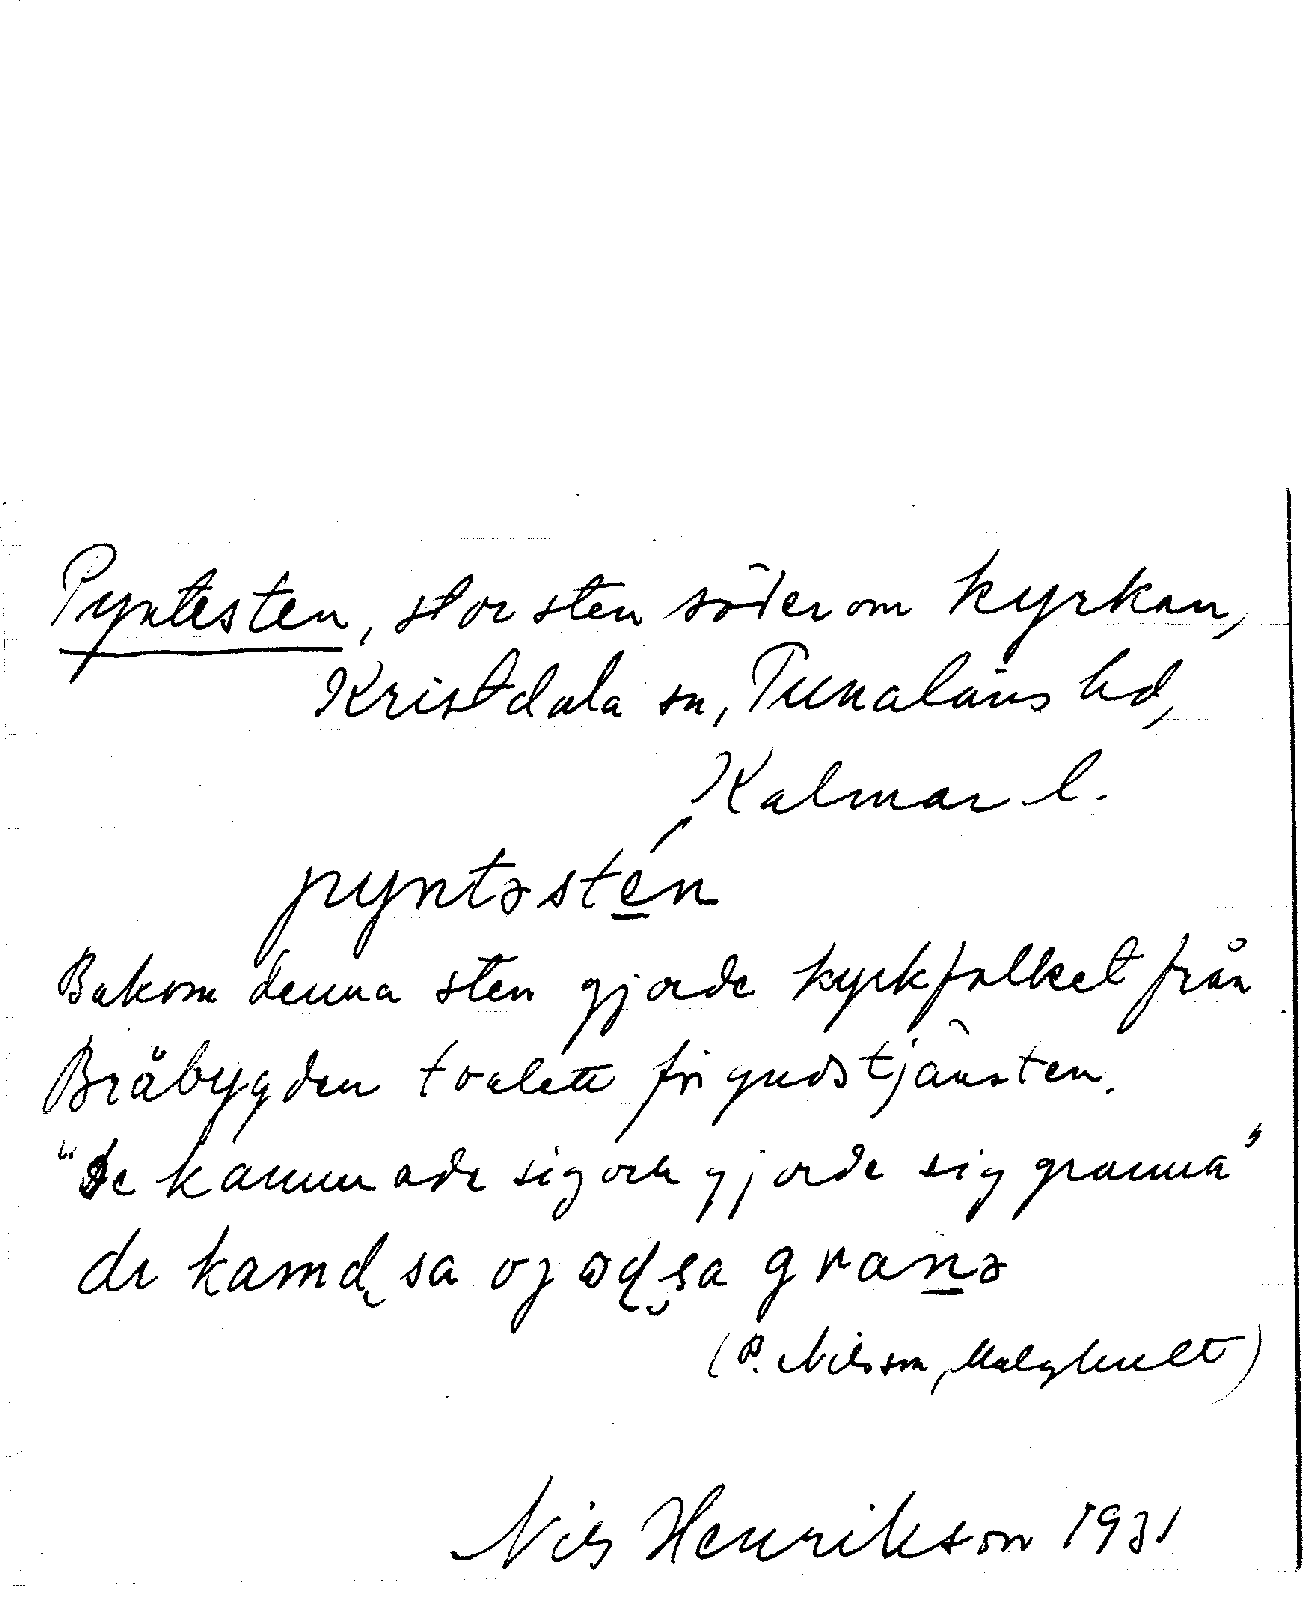 Pyntesten, stor sten söder om kyrkan,
Kristdala sn, Tunaläns hd,
Kalmar l.
pyntəstén
Bakom denna sten gjorde kyrkfolket från
Bråbygden toalett fr gudstjänsten.
"De kammade sig och gjorde sig granna"
di kamd sa o jod sa granə
(P. Nilsson, )
Nils Henrikson 1931